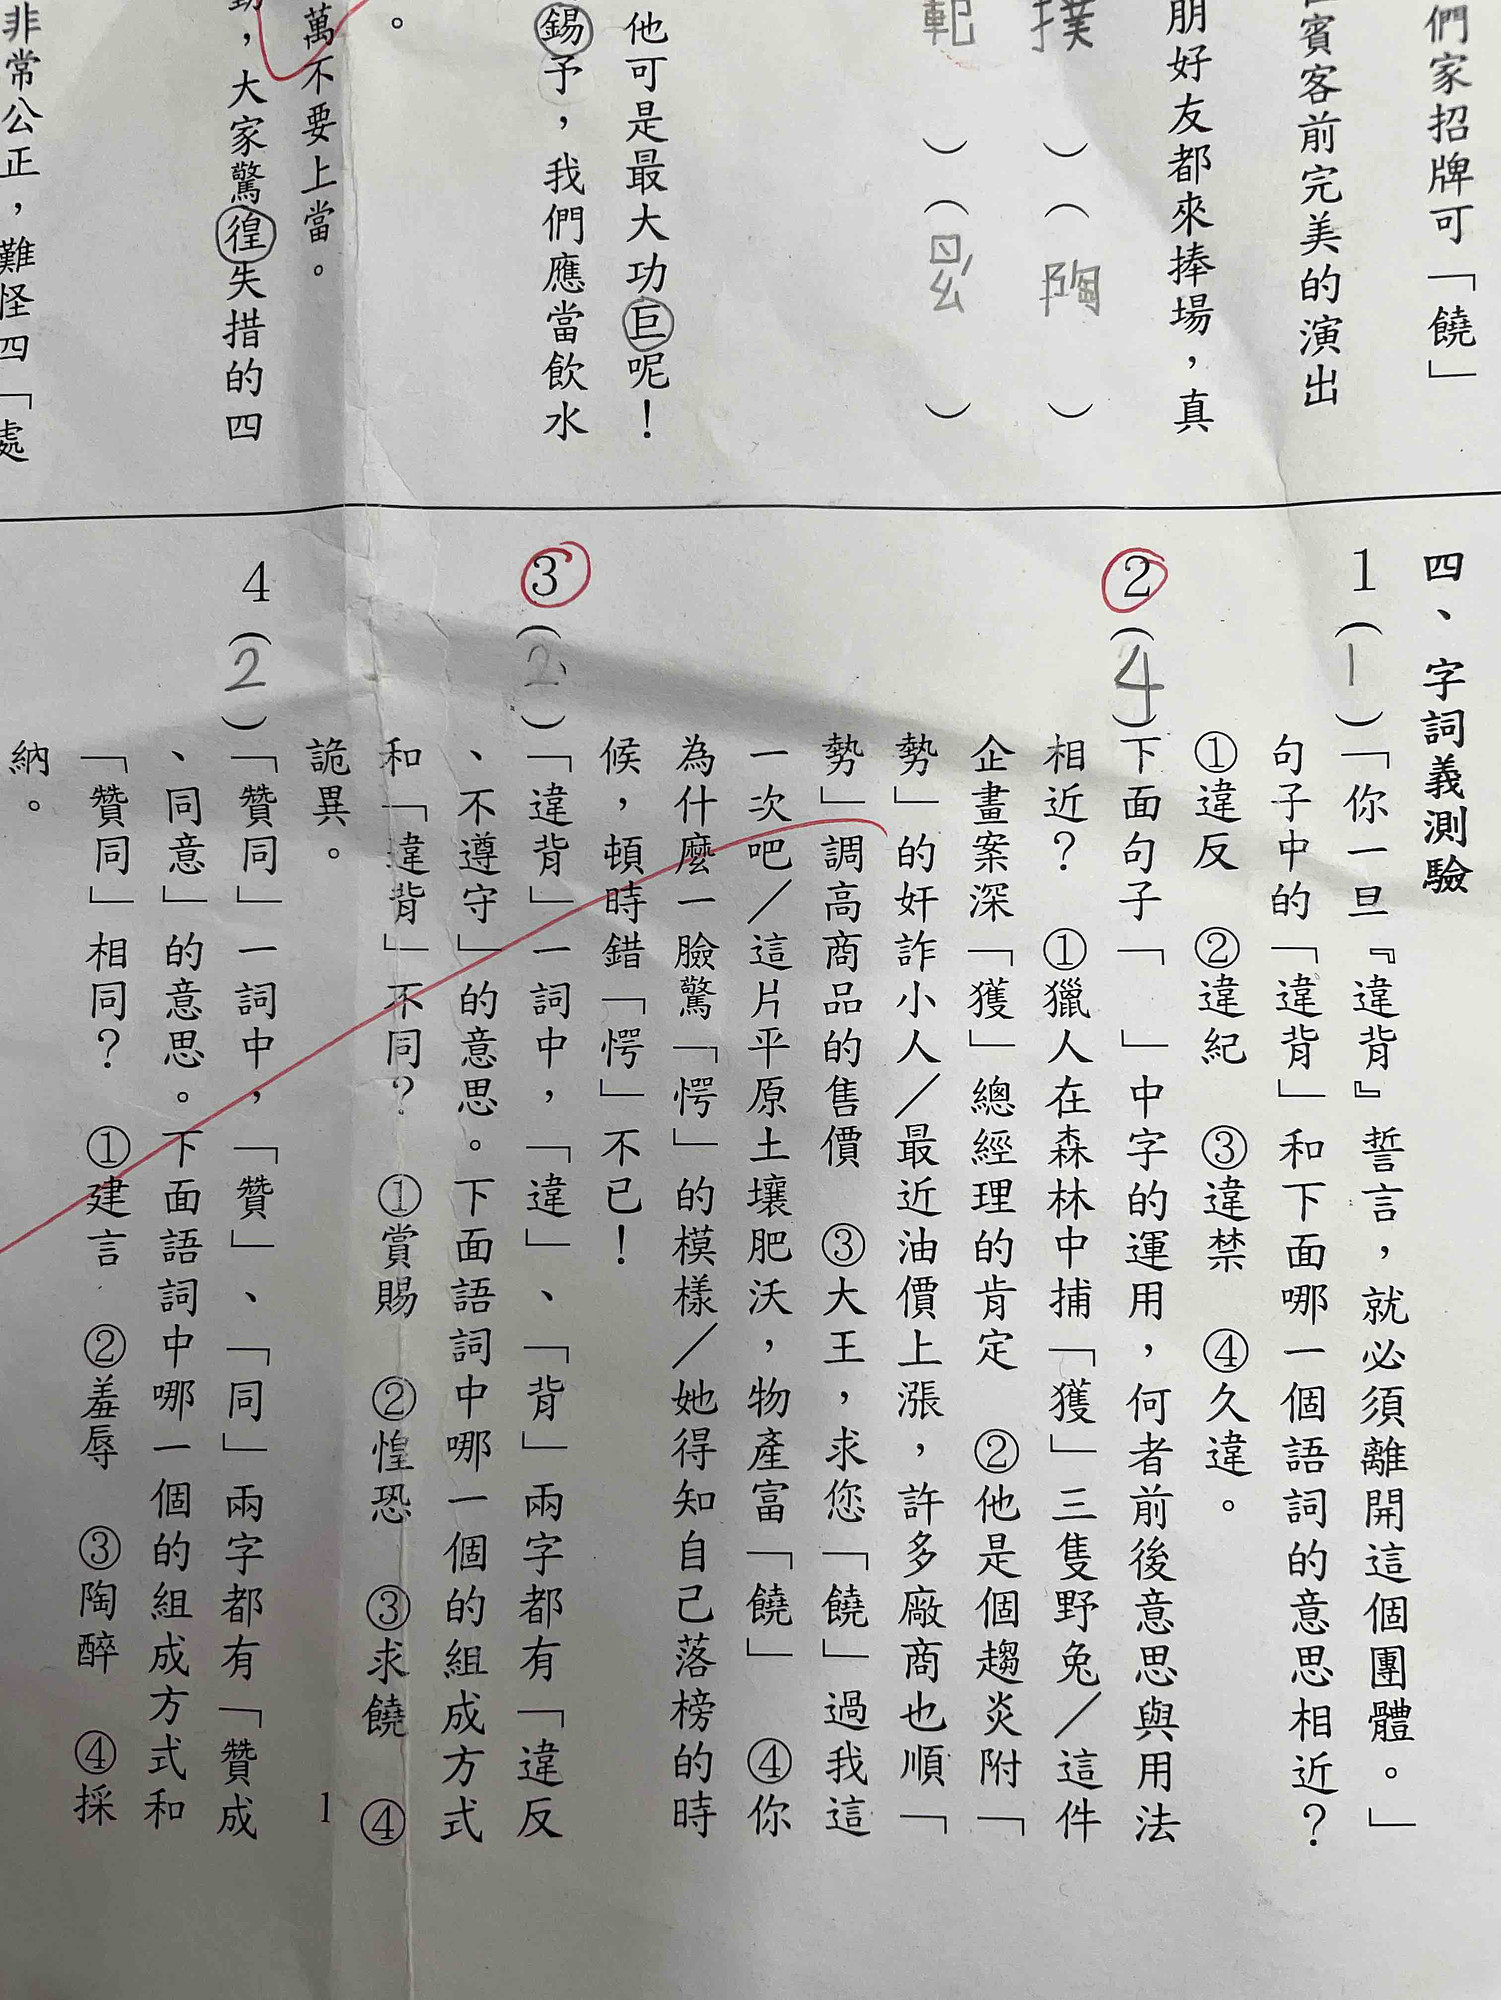 們家招牌可「饒」
賓客前完美的演出
朋好友都來捧場，真
撲 ）（ 陶 ）
範 ）（ ）
他可是最大功巨呢！
錫予，我們應當飲水
。
萬不要上當。
，大家驚徨失措的四
非常公正，難怪四「處
四、字詞義測驗
1（1）「你一旦『違背』誓言，就必須離開這個團體。」
句子中的「違背」和下面哪一個語詞的意思相近？
①違反 ②違紀 ③違禁 ④久違。
2（4）下面句子「 」中字的運用，何者前後意思與用法
相近？ ①獵人在森林中捕「獲」三隻野兔／這件
企畫案深「獲」總經理的肯定 ②他是個趨炎附「
勢」的奸詐小人／最近油價上漲，許多廠商也順「
勢」調高商品的售價 ③大王，求您「饒」過我這
一次吧／這片平原土壤肥沃，物產富「饒」 ④你
為什麼一臉驚「愕」的模樣／她得知自己落榜的時
候，頓時錯「愕」不已！
3（2）「違背」一詞中，「違」、「背」兩字都有「違反
、不遵守」的意思。下面語詞中哪一個的組成方式
和「違背」不同？ ①賞賜 ②惶恐 ③求饒 ④
詭異。
4（2）「贊同」一詞中，「贊」、「同」兩字都有「贊成
、同意」的意思。下面語詞中哪一個的組成方式和
「贊同」相同？ ①建言 ②羞辱 ③陶醉 ④採
納。
1